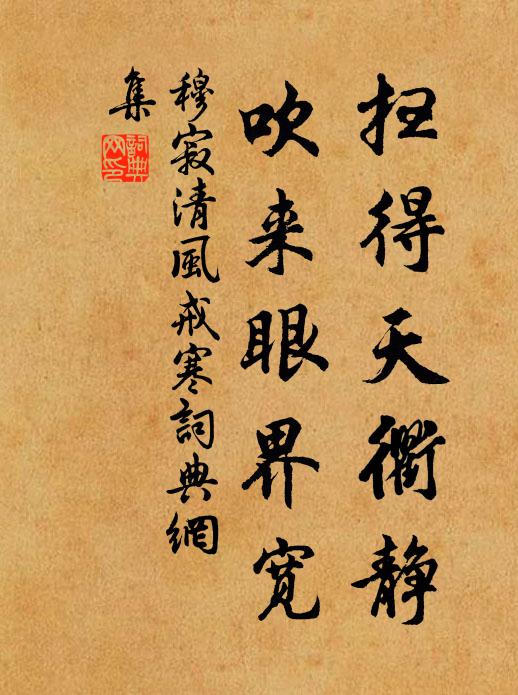 扫得天衢静
吹来眼界宽
穆寂清風戒寒詞典網
集
詞典
网印